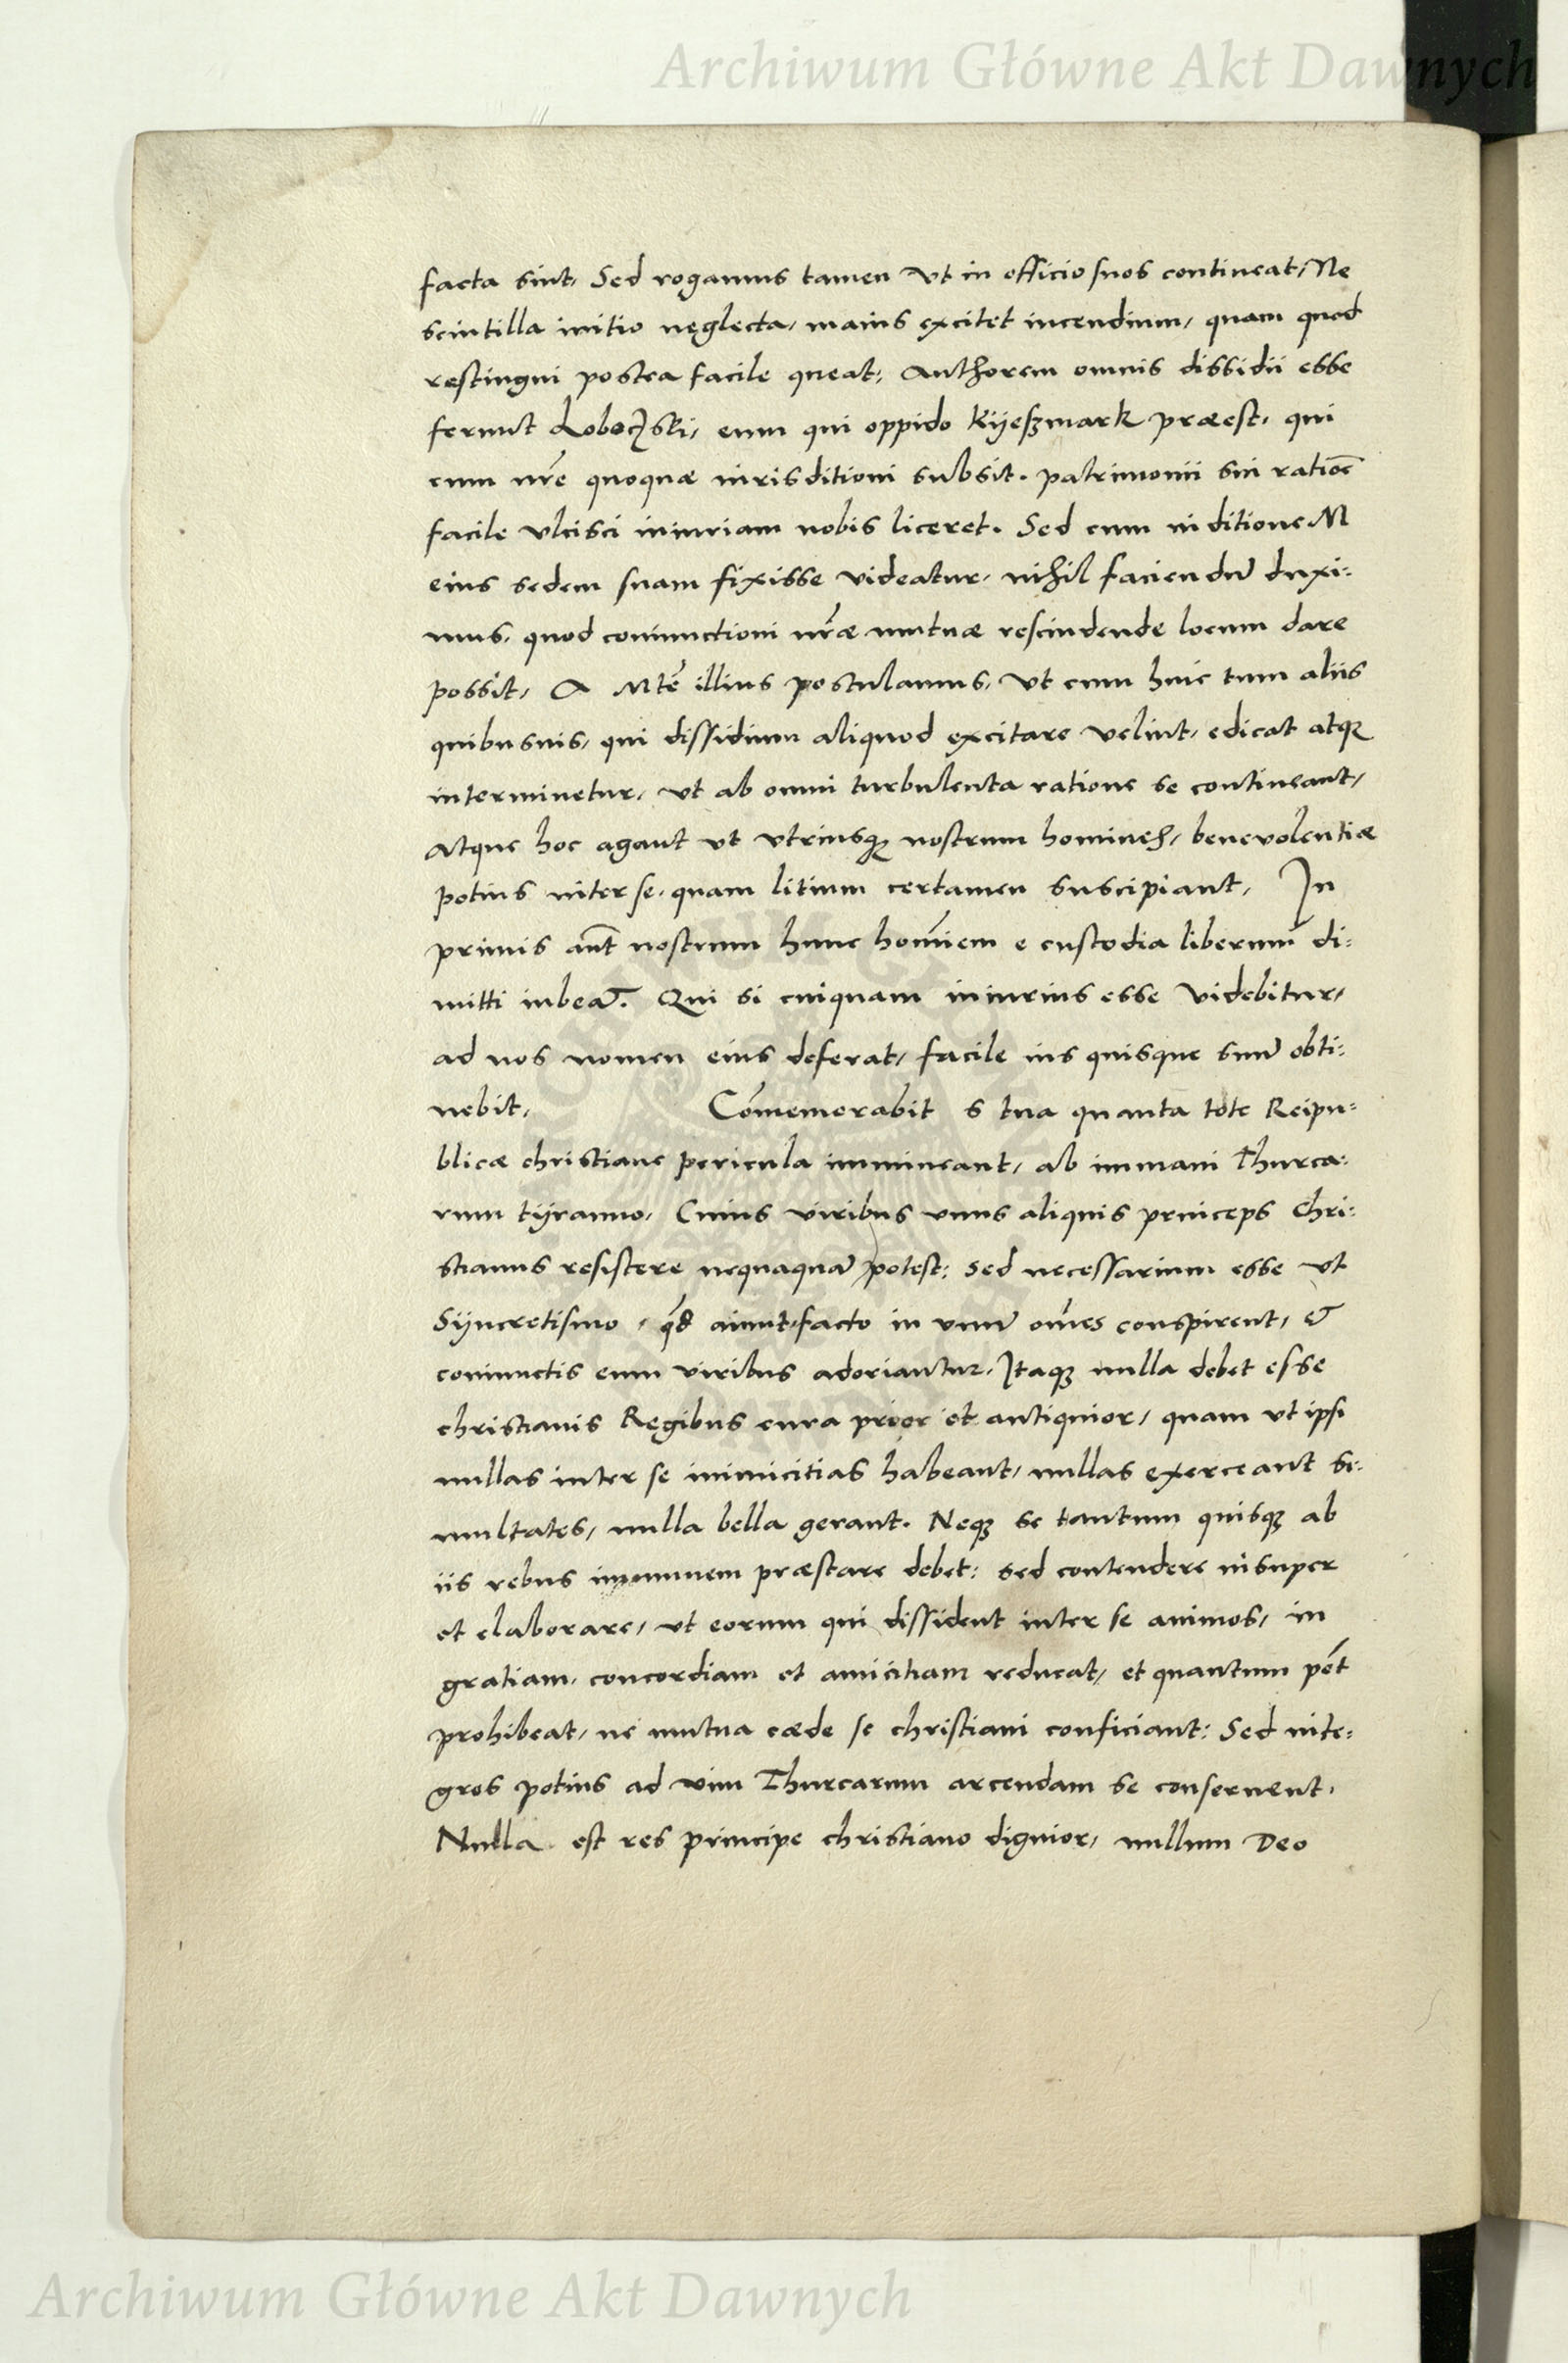 Archiwum Główne Akt Dawnych
facta sint, Sed rogamus tamen vt in officio suos contineat, Ne
scintilla initio neglecta, maius excitet incendium, quam quod
restingui postea facile queat, Authorem omnis dissidii esse
ferunt Loboczski, eum qui oppido Kyeszmark præest, qui
cum nr̃e quoquæ iurisditioni subsit. patrimonii sui ratiõe
facile vlcisci iniuriam nobis liceret. Sed cum in ditione M
eius sedem suam fixisse videatur, nihil faciendũ duxi:
mus, quod coniunctioni nr̃æ mutuæ rescindende locum dare
possit, A Mtẽ illius postulamus, vt cum huic tum aliis
quibusuis, qui dissidium aliquod excitare velint, edicat atqȝ
interminetur, vt ab omni turbulenta ratione se contineant,
Atque hoc agant vt vtriusqȝ nostrum homines, benevolentiæ
potius inter se, quam litium certamen suscipiant, In
primis aũt nostrum hunc homiñem e custodia liberum̃ di:
mitti iubeat. Qui si cuiquam iniurius esse videbitur,
ad nos nomen eius deferat, facile ius quisque suũ obti:
nebit, Com̃emorabit s tua quanta tote Reipu:
blicæ christiane pericula immineant, ab immani Thurca:
rum tÿranno, Cuius viribus vnus aliquis princeps Chri:
stianus resistere nequaquã potest: sed necessarium esse vt
Sÿncretismo, qd̃ aiunt, facto in vnũ om̃es conspirent, &
coniunctis eum viribus adoriantur, Itaqȝ nulla debet esse
christianis Regibus cura prior et antiquior, quam vt ipsi
nullas inter se inimicitias habeant, nullas exerceant si:
multates, nulla bella gerant. Neqȝ se tantum quisqȝ ab
iis rebus immunem præstare debet: sed contendere insuper
et elaborare, vt eorum qui dissident inter se animos, in
gratiam, concordiam et amicitiam reducat, et quantum põt
prohibeat, ne mutua cæde se christiani conficiant: Sed inte:
gros potius ad vim Thurcarum arcendam se conseruent.
Nulla est res principe christiano dignior, nullum Deo
Archiwum Główne Akt Dawnych